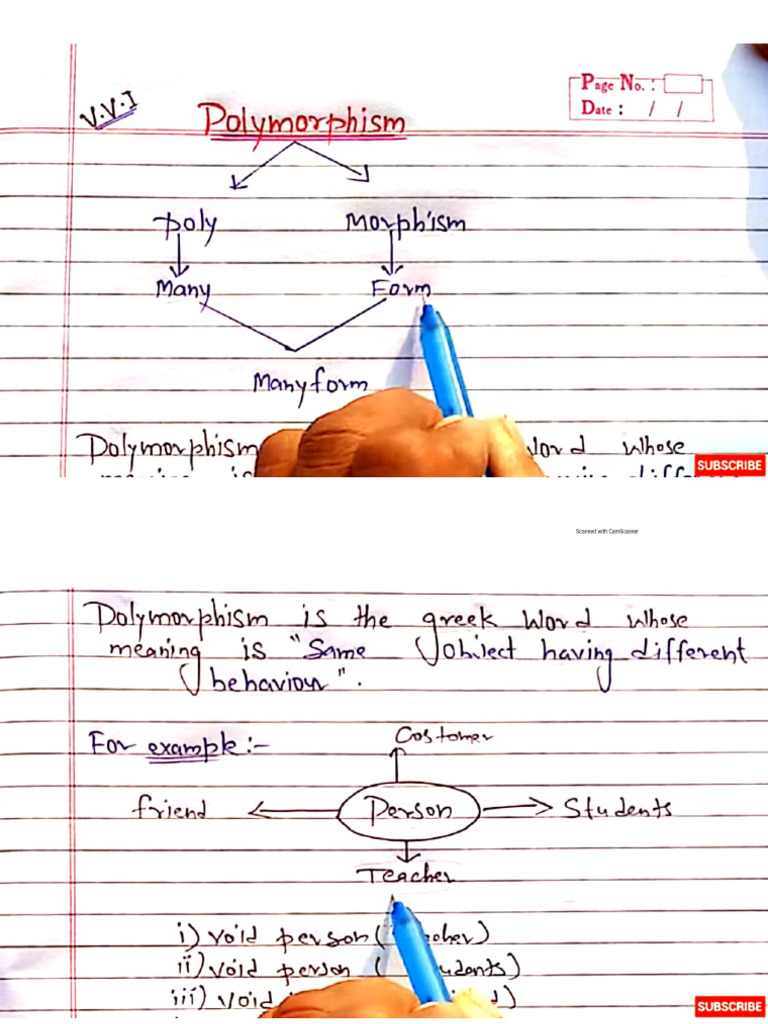 V.V.I
Page No. :
Date : / /
Polymorphism
Poly Morphism
Many Form
Many form
Polymorphism Word whose
SUBSCRIBE
Scanned with CamScanner
Polymorphism is the greek Word whose
meaning is "Same object having different
behaviour".
For example :-
Costomer
friend Person Students
Teacher
i) void person(
ii) void person (
iii) void
SUBSCRIBE